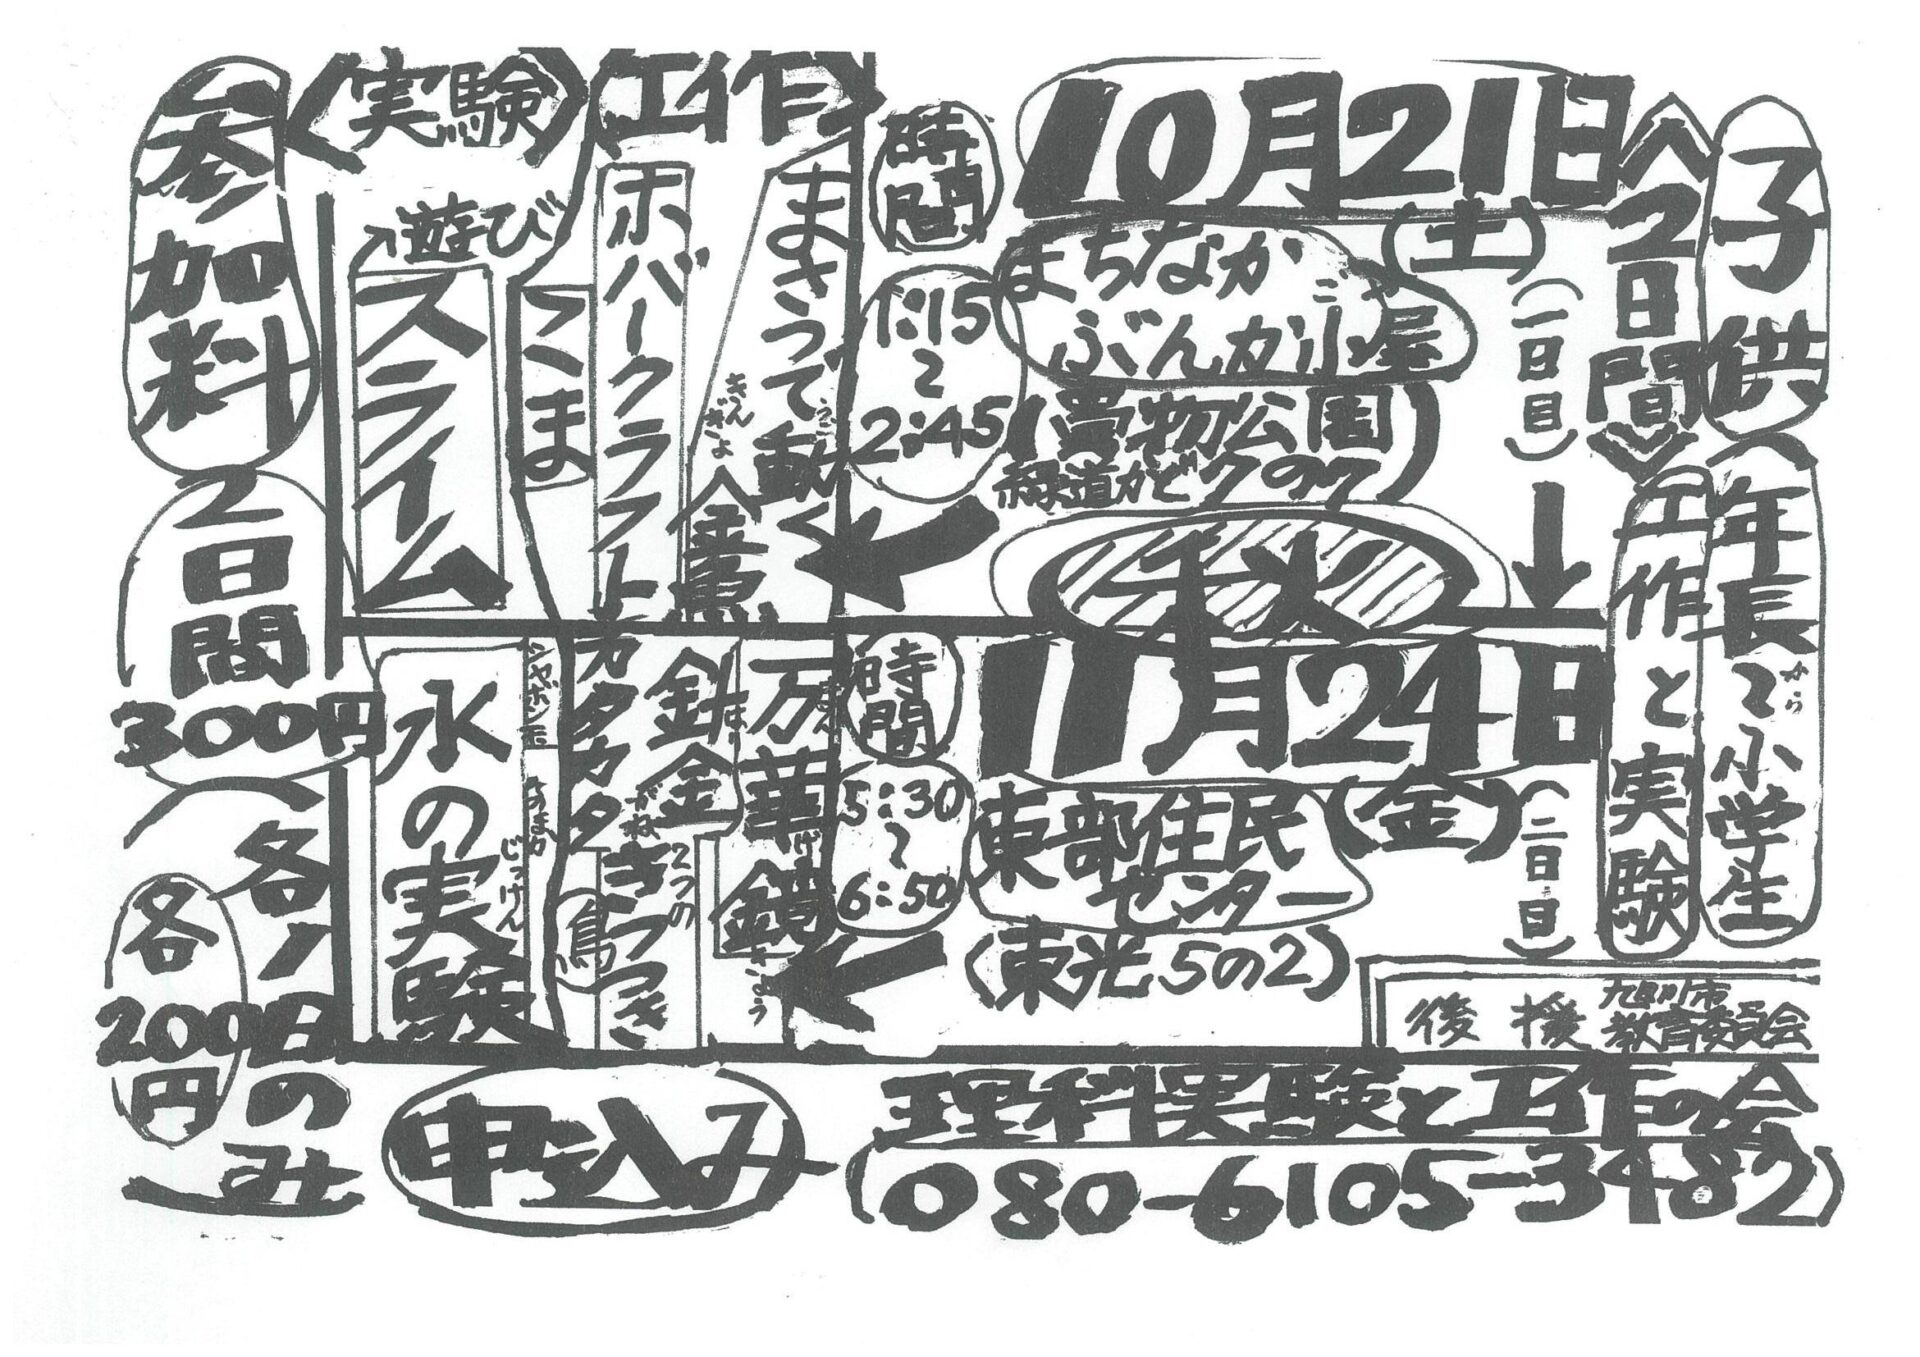 子供
〈年長〜小学生
から
〈2日間〉
工作と実験
10月21日
(土)
(一日目)
まちなか
ぶんか小屋
ごや
(買物公園
緑道かど7の7)
時間
1:15
〜
2:45
〈工作〉
まさつで動く
うご
金魚
きんぎょ
ホバークラフト
〈実験〉
遊び
スライム
こま
秋
11月24日
(金)
(二日目)
東部住民
センター
(東光5の2)
時間
5:30
〜
6:50
万華鏡
まん
げ
きょう
針金
はり
がね
2つの
きつつき
(鳥)
カタカタ
シャボン玉
水の実験
じっけん
参加料
2日間
300円
(各1日のみ)
各
200円
後援
旭川市
教育委員会
申し込み
理科実験と工作の会
(080-6105-3482)